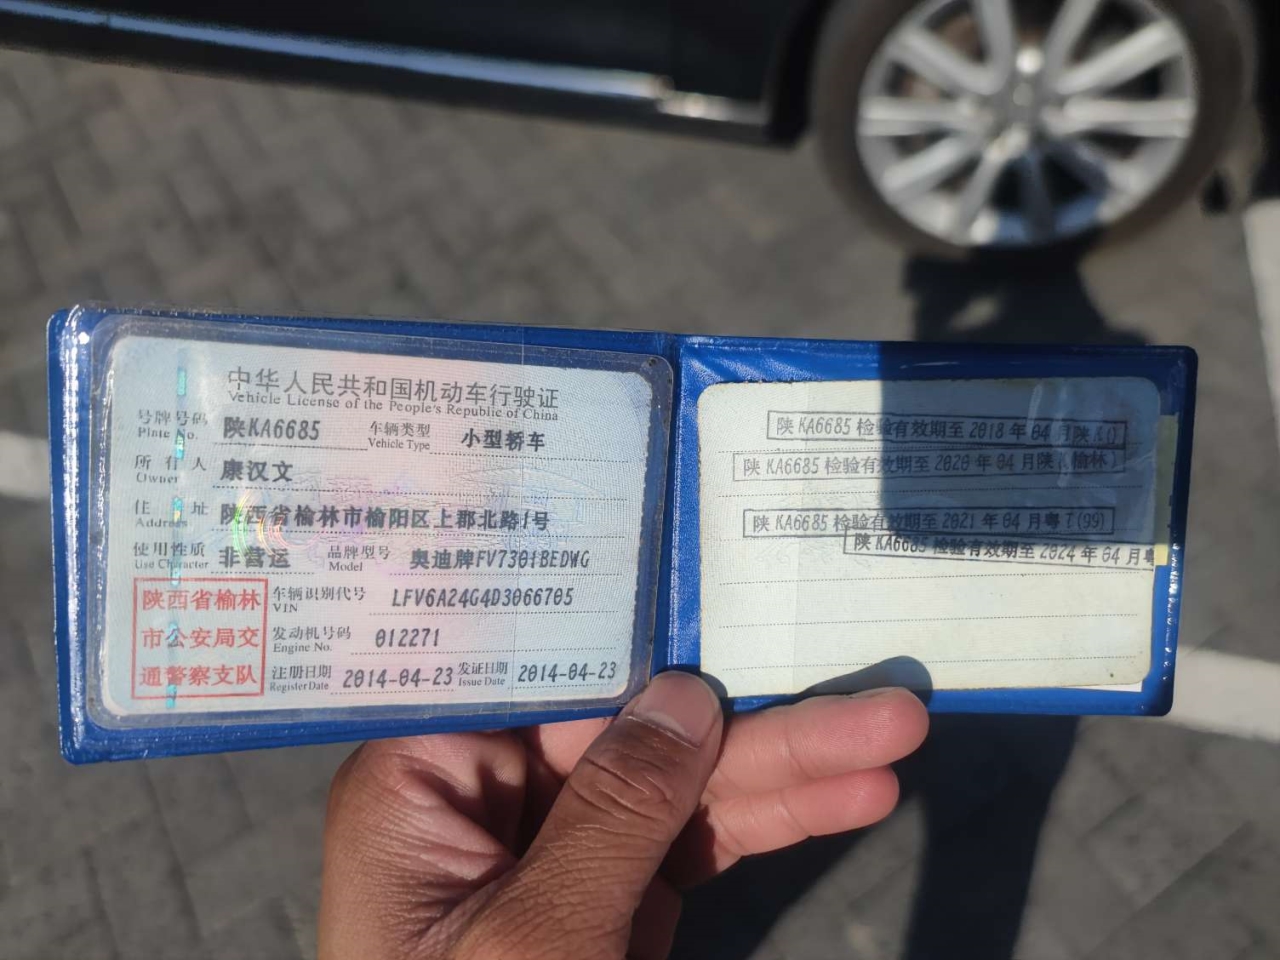 中华人民共和国机动车行驶证
Vehicle License of the People's Republic of China
号牌号码 陕KA6685 车辆类型 小型轿车
Plate No. Vehicle Type
所有人 康汉文
Owner
住址 陕西省榆林市榆阳区上郡北路1号
Address
使用性质 非营运 品牌型号 奥迪牌FV7301BEDWG
Use Character Model
陕西省榆林
市公安局交
通警察支队
车辆识别代号 LFV6A24G4D3066705
VIN
发动机号码 012271
Engine No.
注册日期 2014-04-23 发证日期 2014-04-23
Register Date Issue Date
陕KA6685 检验有效期至 2018 年 04 月陕K()
陕 KA6685 检验有效期至 2020 年 04 月陕(榆林)
陕 KA6685 检验有效期至 2021 年 04 月粤T(99)
陕 KA6685 检验有效期至 2024 年 04 月粤